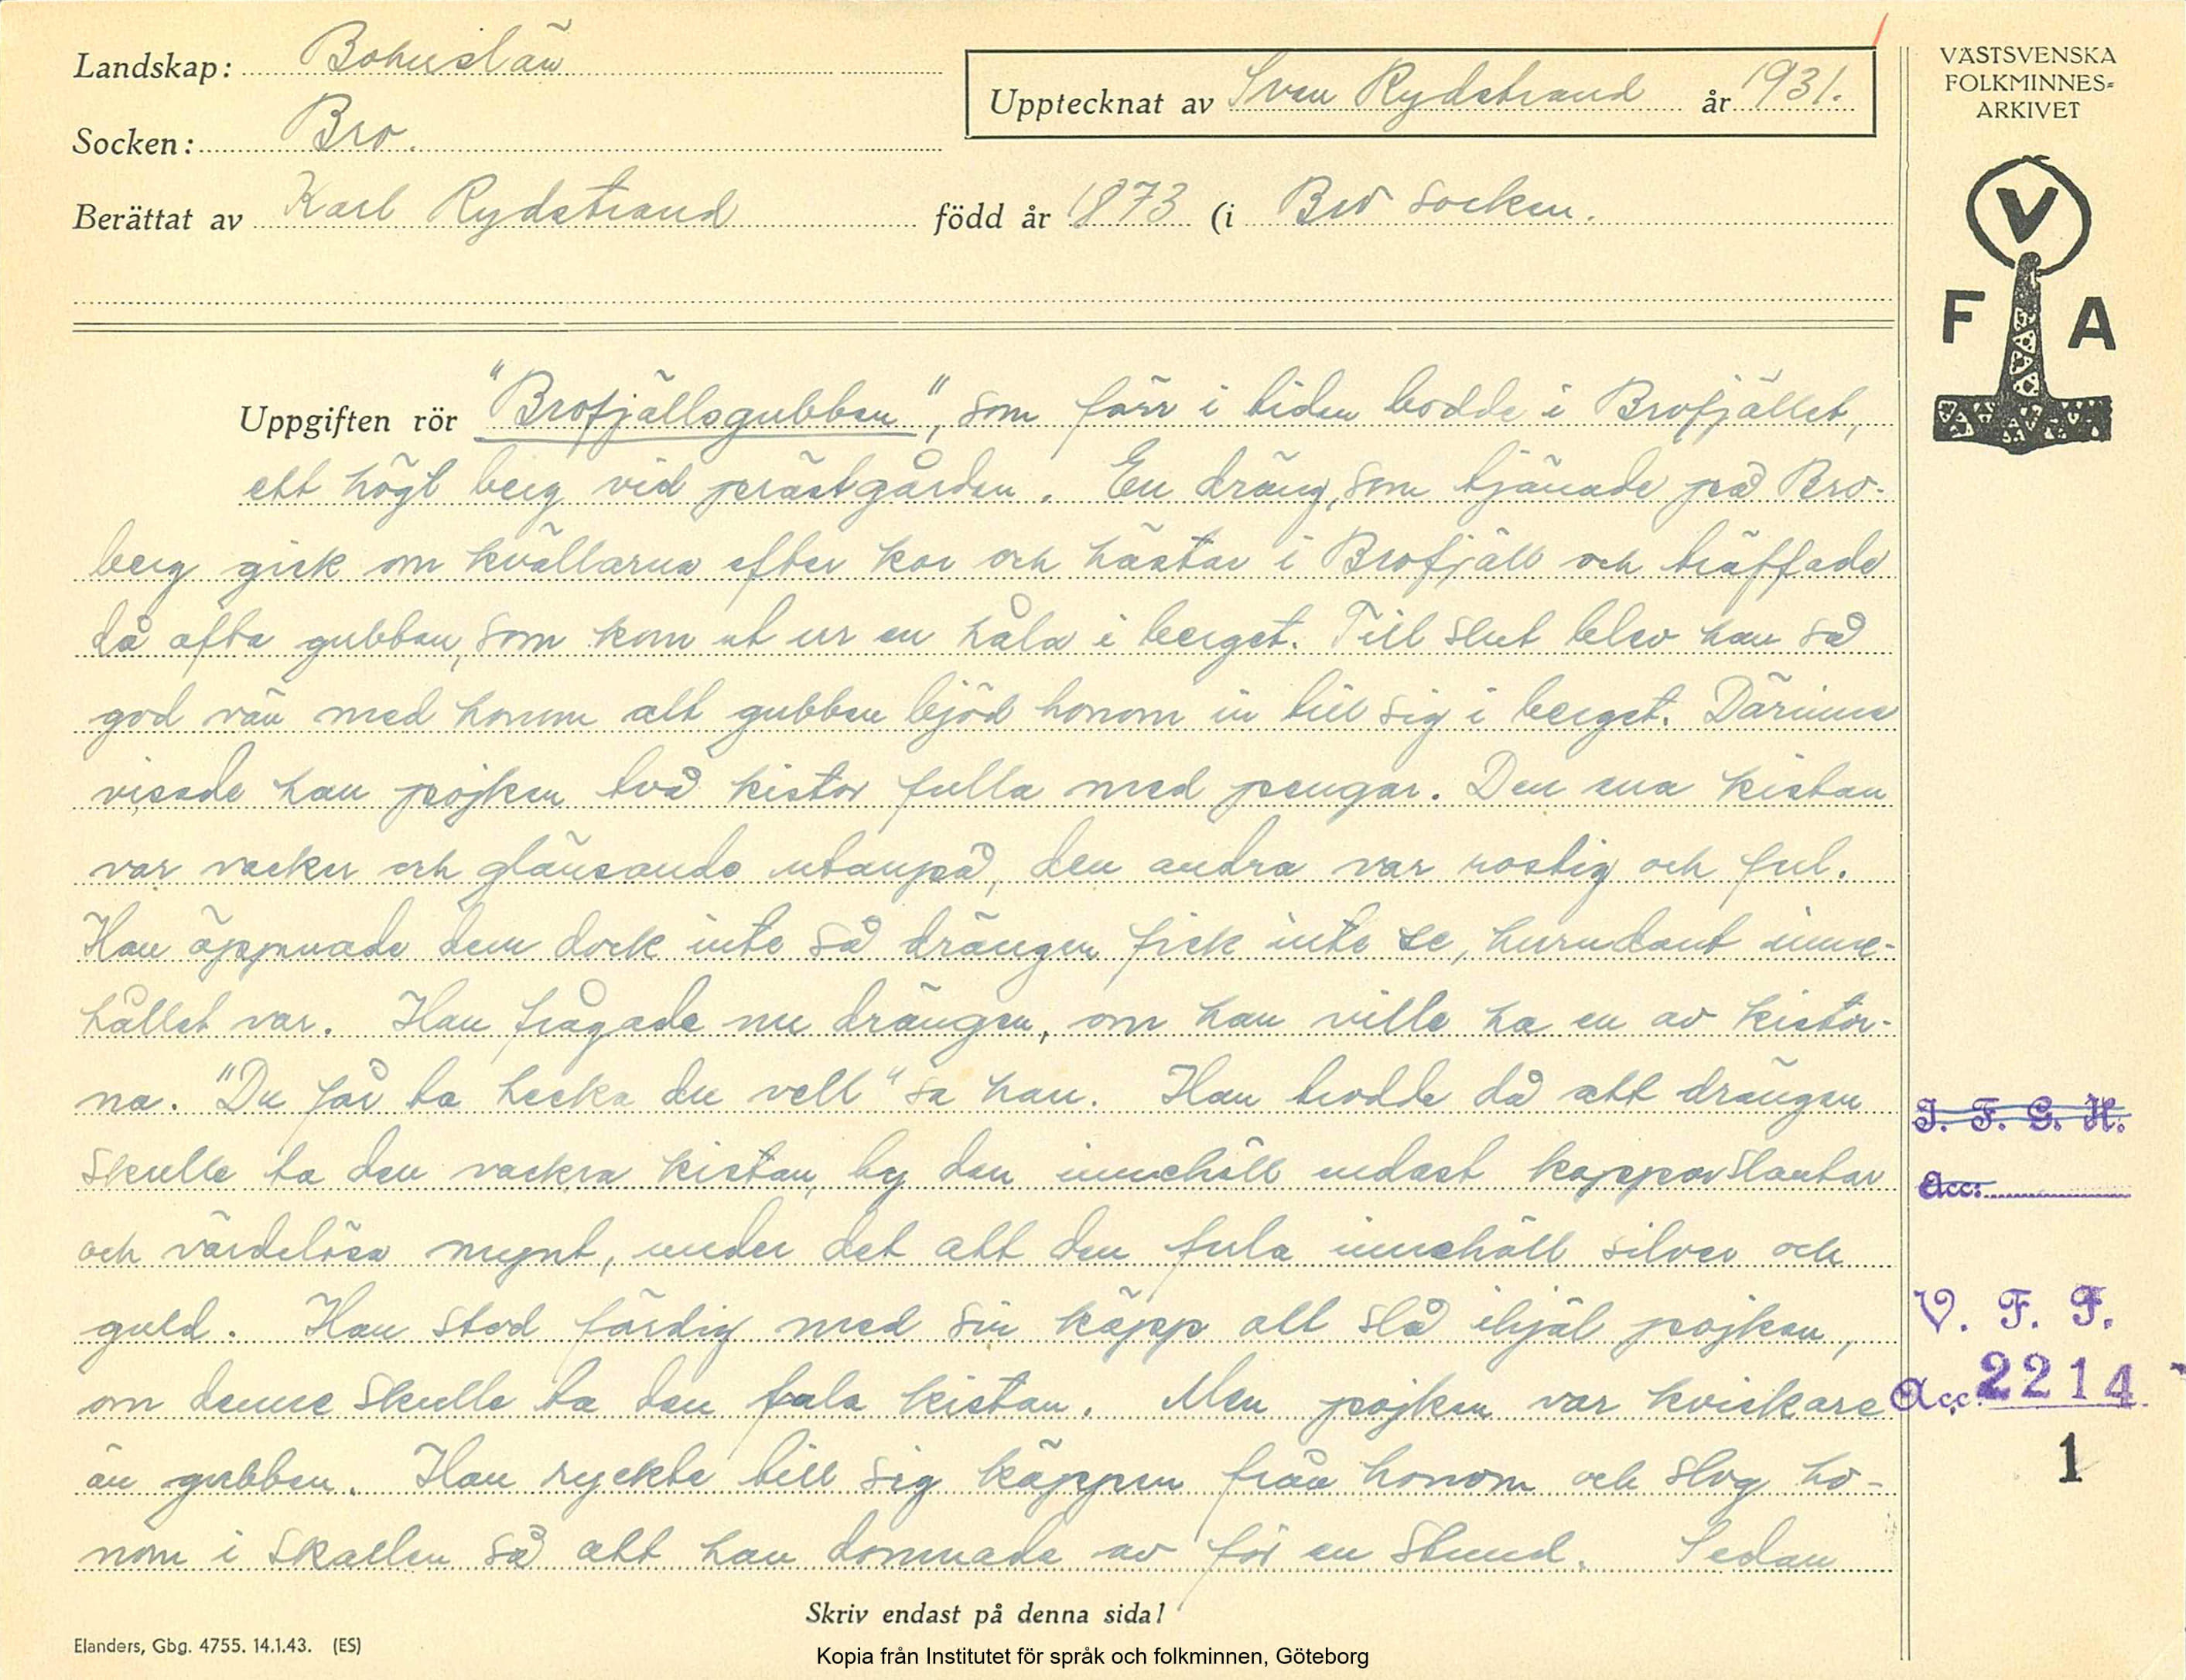 Landskap: Bohuslän
Socken: Bro.
Berättat av Karl Rydstrand född år 1873 (i Bro socken.
Upptecknat av Sven Rydstrand år 1931.
VÄSTSVENSKA
FOLKMINNES-
ARKIVET
V
F A
Uppgiften rör "Brofjällsgubben", som förr i tiden bodde i Brofjället,
ett högt berg vid prästgården. En dräng, som tjänade på Bro-
berg gick om kvällarna efter kor och hästar i Brofjäll och träffade
då ofta gubben, som kom ut ur en håla i berget. Till slut blev han så
god vän med honom att gubben bjöd honom in till sig i berget. Därinne
visade han pojken två kistor fulla med pengar. Den ena kistan
var vacker och glänsande utanpå, den andra var rostig och ful.
Han öppnade dem dock inte så drängen fick inte se, hurudant inne-
hållet var. Han frågade nu drängen, om han ville ha en av kistor-
na. "Du får ta hecka du vell" sa han. Han trodde då att drängen
skulle ta den vackra kistan, ty den innehöll endast kopparslantar
och värdelösa mynt, under det att den fula innehöll silver och
guld. Han stod färdig med sin käpp att slå ihjäl pojken,
om denne skulle ta den fula kistan. Men pojken var kvickare
än gubben. Han ryckte till sig käppen från honom och slog ho-
nom i skallen så att han domnade av för en stund. Sedan
I. F. G. H.
Acc:
V. F. F.
Acc. 2214
1
Skriv endast på denna sida!
Elanders, Gbg. 4755. 14.1.43. (ES)
Kopia från Institutet för språk och folkminnen, Göteborg